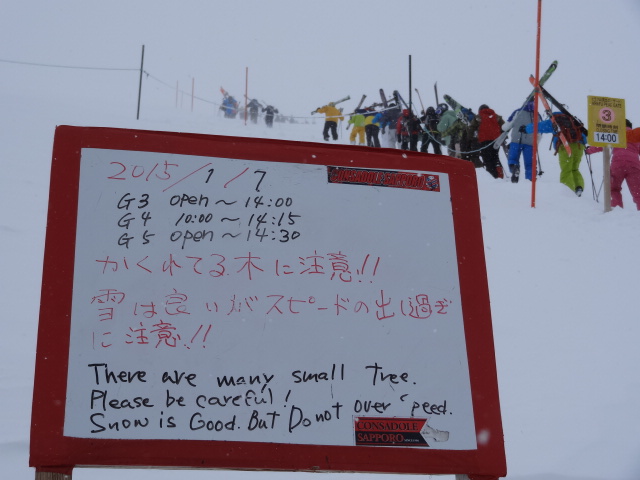 2015/1/7
G3 open～14:00
G4 10:00～14:15
G5 open～14:30
かくれてる木に注意!!
雪は良いがスピードの出し過ぎ
に注意!!
There are many small Tree.
Please be careful!
Snow is Good. But Do not over peed.
CONSADOLE
SAPPORO
3
14:00